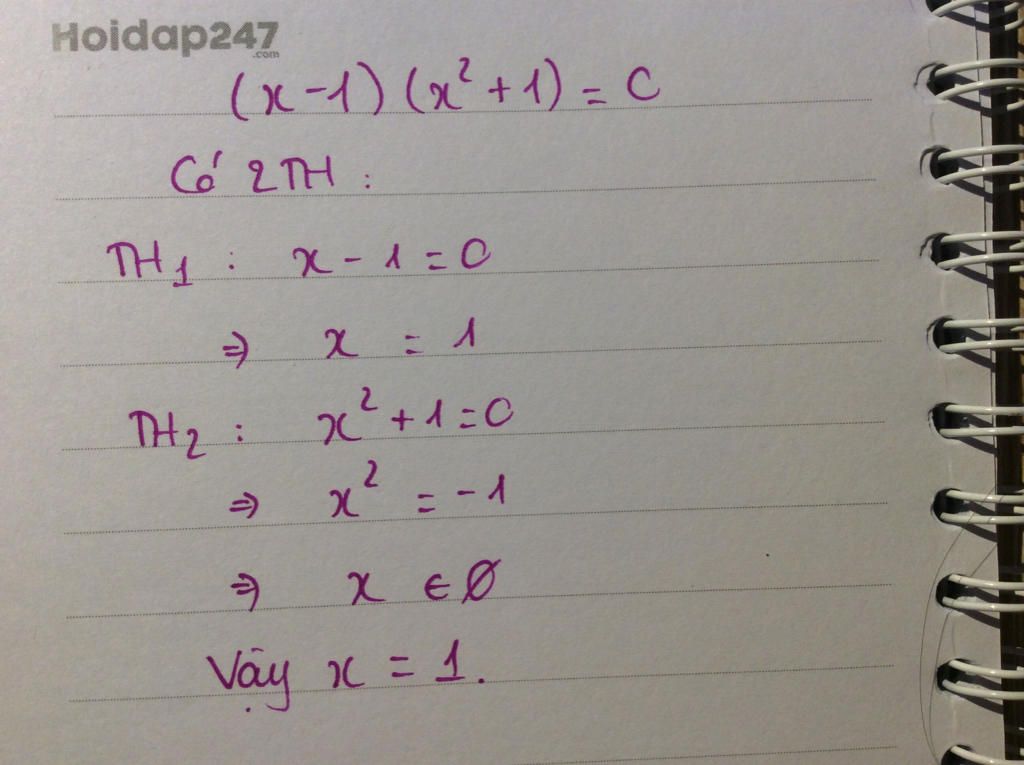 Hoidap247
.com
(x-1)(x²+1)=0
Có 2TH:
TH₁: x-1=0
⇒ x = 1
TH₂: x²+1=0
⇒ x² = -1
⇒ x ∈ Ø
Vậy x = 1.